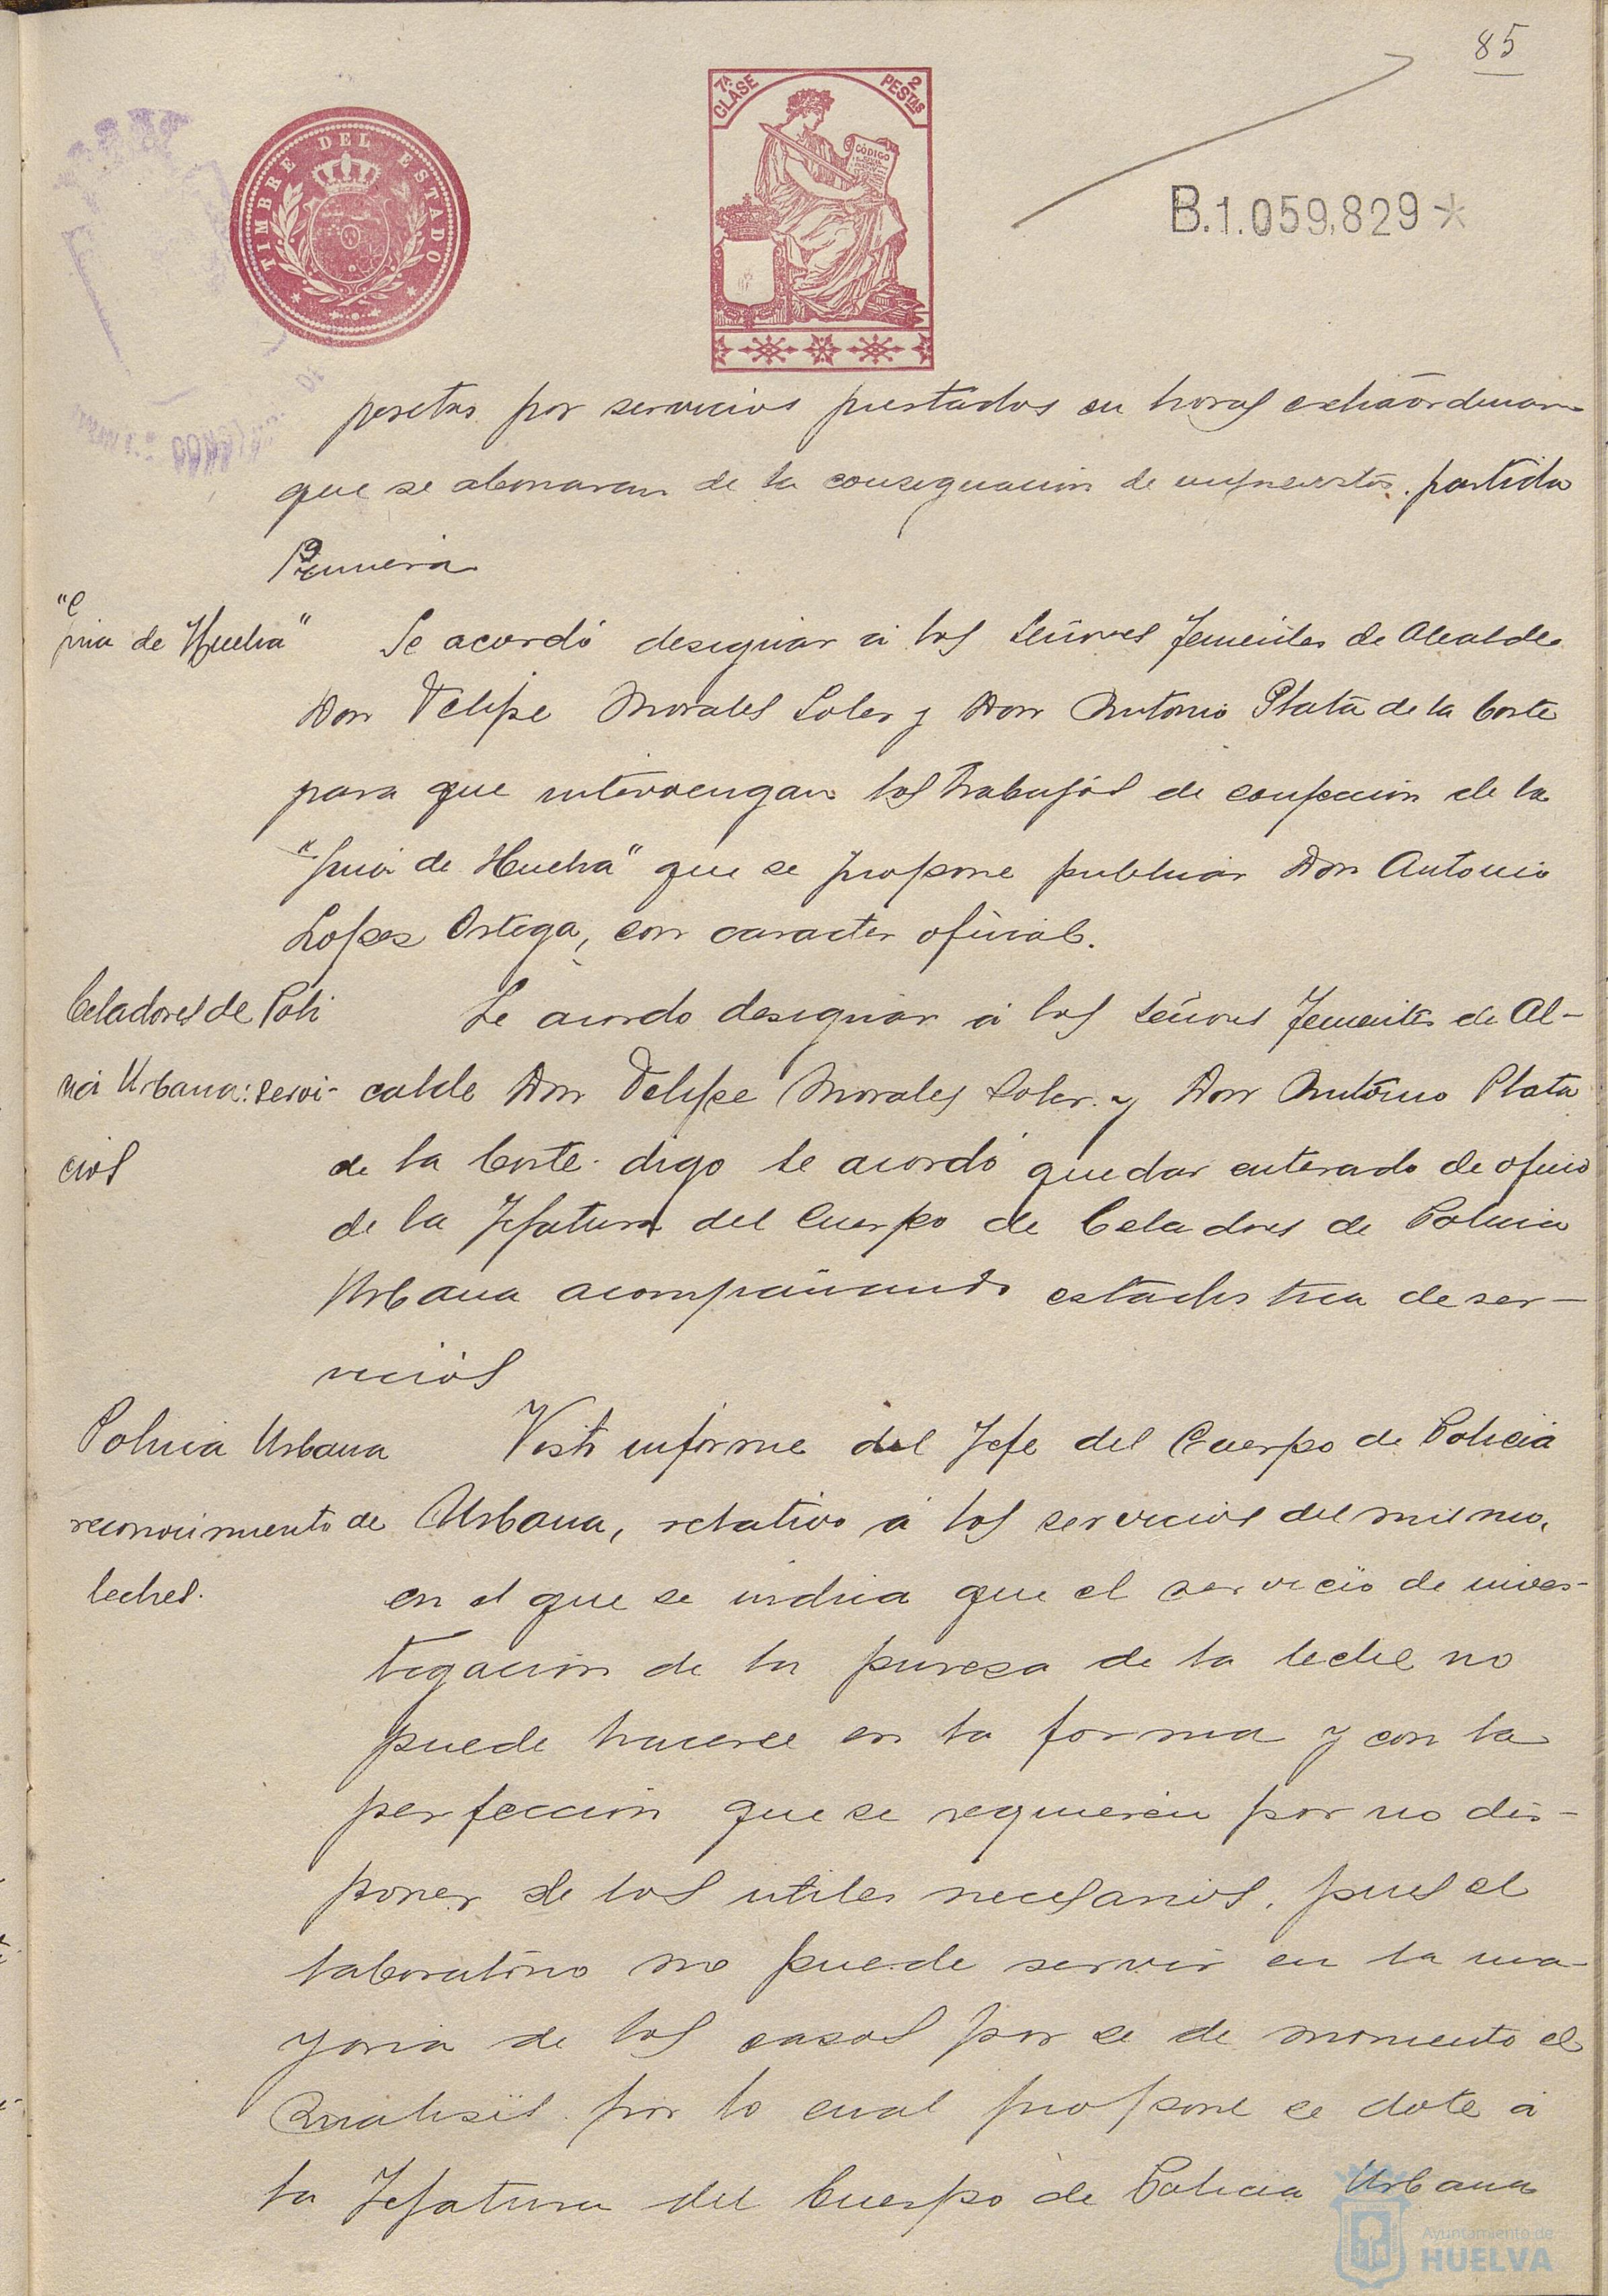 85
TIMBRE DEL ESTADO
7ª CLASE
2 PESTAS
CÓDIGO
B.1.059,829*
pesetas por servicios prestados en horas extraordinar
que se abonaran de la consignacion de impuestos. partida
Primera
Se acordó designar á los Señores Tenientes de Alcalde
"Guia de Huelva"
Don Felipe Morales Soler y Don Antonio Plata de la Corte
para que intervengan los trabajos de confeccion de la
"Guia de Huelva" que se propone publicar Don Antonio
Lopez Ortega, con caracter oficial.
Celadores de Poli
Se acordo designar á los Señores Tenientes de Al-
cia Urbana: servi-
calde Don Felipe Morales Soler y Don Antonio Plata
cios
de la Corte. digo se acordó quedar enterado de oficio
de la Jefatura del Cuerpo de Celadores de Policia
Urbana acompañando estadistica de ser-
vicios
Policia Urbana
Visto informe del Jefe del Cuerpo de Policia
reconocimiento de
Urbana, relativo á los servicios del mismo,
leches.
en el que se indica que el servicio de inves-
tigacion de la pureza de la leche no
puede hacerse en la forma y con la
perfeccion que se requieren por no dis-
poner de los utiles necesarios, pues el
laboratorio no puede servir en la ma-
yoria de los casos por se de momento el
analisis por lo cual propone se dote á
la Jefatura del Cuerpo de Policia Urbana
Ayuntamiento de
HUELVA